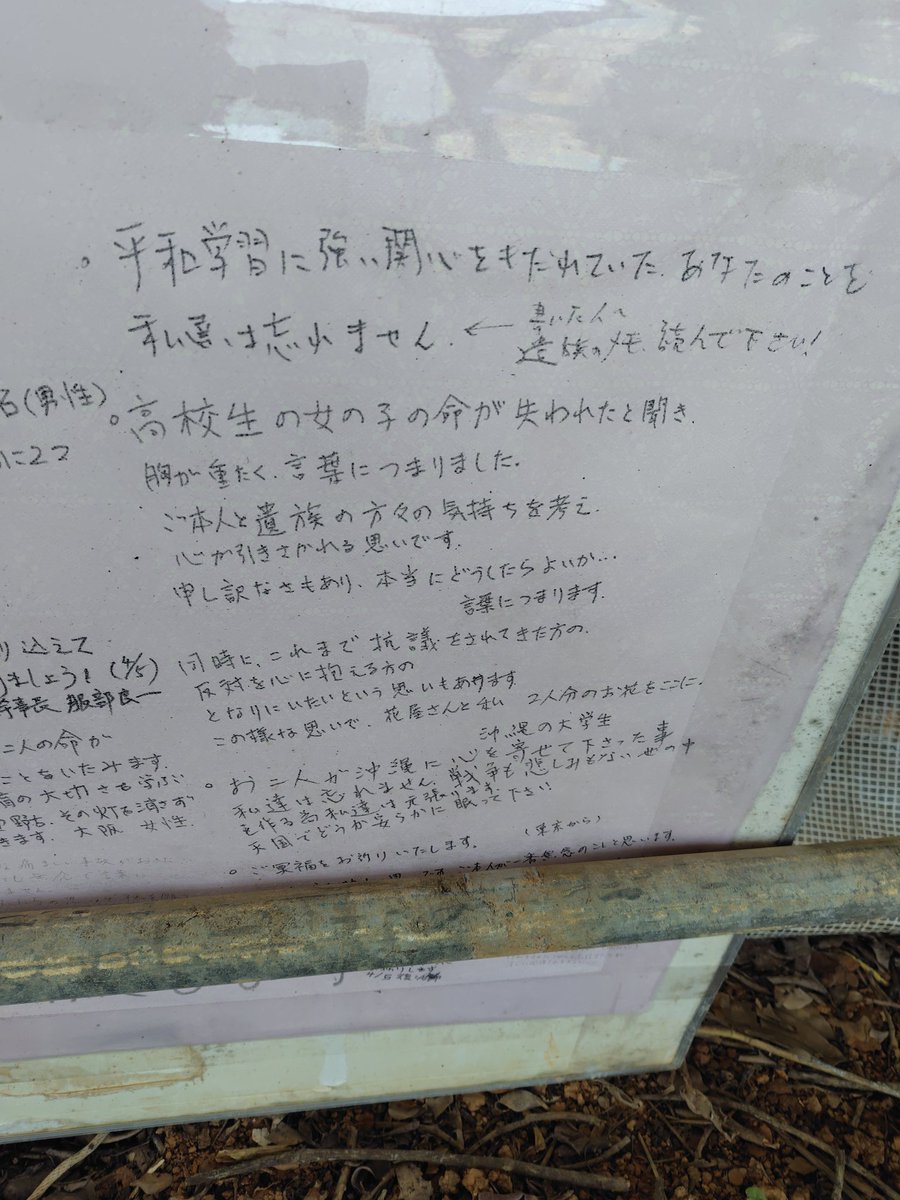 。平和学習に強い関心をきだれていた、あなたのことを
私達は忘れません。← 書いた人へ
遺族のメモ、読んで下さい！
名(男性)
に22
。高校生の女の子の命が失われたと聞き、
胸が重たく、言葉につまりました。
ご本人と遺族の方々の気持ちを考え、
心が引きさかれる思いです。
申し訳なさもあり、本当にどうしたらよいか…
言葉につまります。
り込えて
ましょう！(4/5)
幹事長 服部良一
同時に、これまで抗議をされてきた方の、
反対を心に抱える方の
となりにいたいという思いもあります。
この様な思いで、花屋さんと私 2人分のお花をここに。
沖縄の大学生
二人の命が
ことをいたみます。
の大切さを学ぶ
その灯を消さず
きます。大阪 女性
。お二人が沖縄に心を寄せて下さった事
私達は忘れません。戦争も悲しみもない世の中
を作る為私達は元張ります。
天国でどうか安らかに眠って下さい!!
(東京から)
。ご冥福をお祈りいたします。
ご本人が一番無念のことと思います。